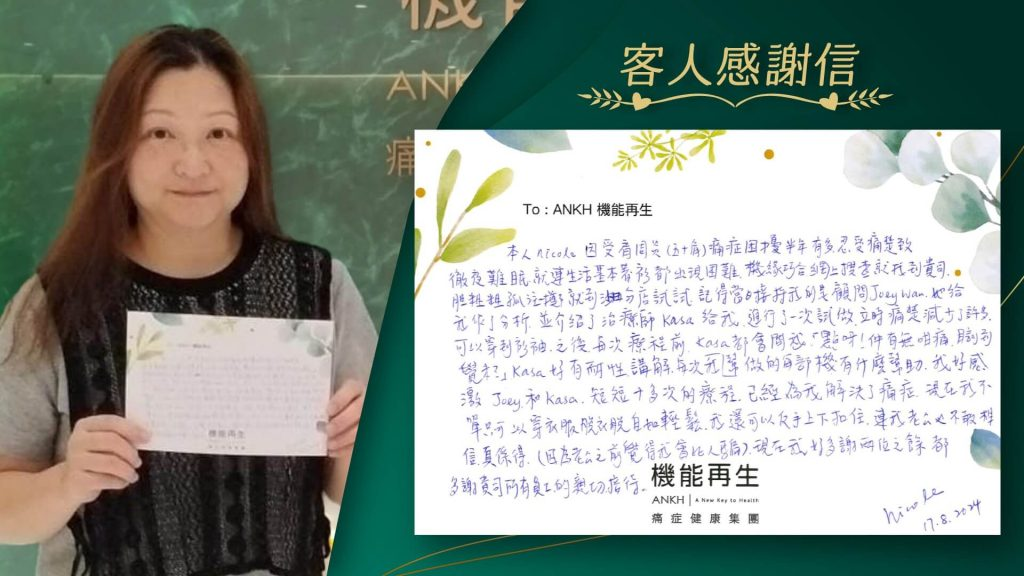 機能
ANKH
痛
機能再生
客人感謝信
To : ANKH 機能再生
本人 Nicole 因受肩周炎(五十肩)痛症困擾半年有多,忍受痛楚致
徹夜難眠,就連生活基本
都出現困難,機緣巧合網上搜查就找到貴司,
膽粗粗
就到
店試試,記得當日接待我的是顧問 Joey Wan, 她給
我作了分析,並介紹了治療師 Kasa 給我,進行了一次試做立時痛楚減少了許多,
可以穿到衫袖,之後每次療程前, Kasa 都會問我:「點呀!仲有無咁痛,瞓到
覺未?」Kasa 好有耐性講解每次我
做的
部機有什麼幫助,我好感
激 Joey 和 Kasa, 短短十多次的療程,已經為我解決了痛症,現在我不
單只可以穿衣服脫衣脫自如輕鬆,我還可以
手上下扣位,連我老公也不敢相
信,真係得,(因為老公之前覺得我會比人騙)。現在我好多謝兩位之餘,都
多謝貴司所有員工的親切招待。
機能再生
ANKH | A New Key to Health
痛症健康集團
Nicole
17.8.2024